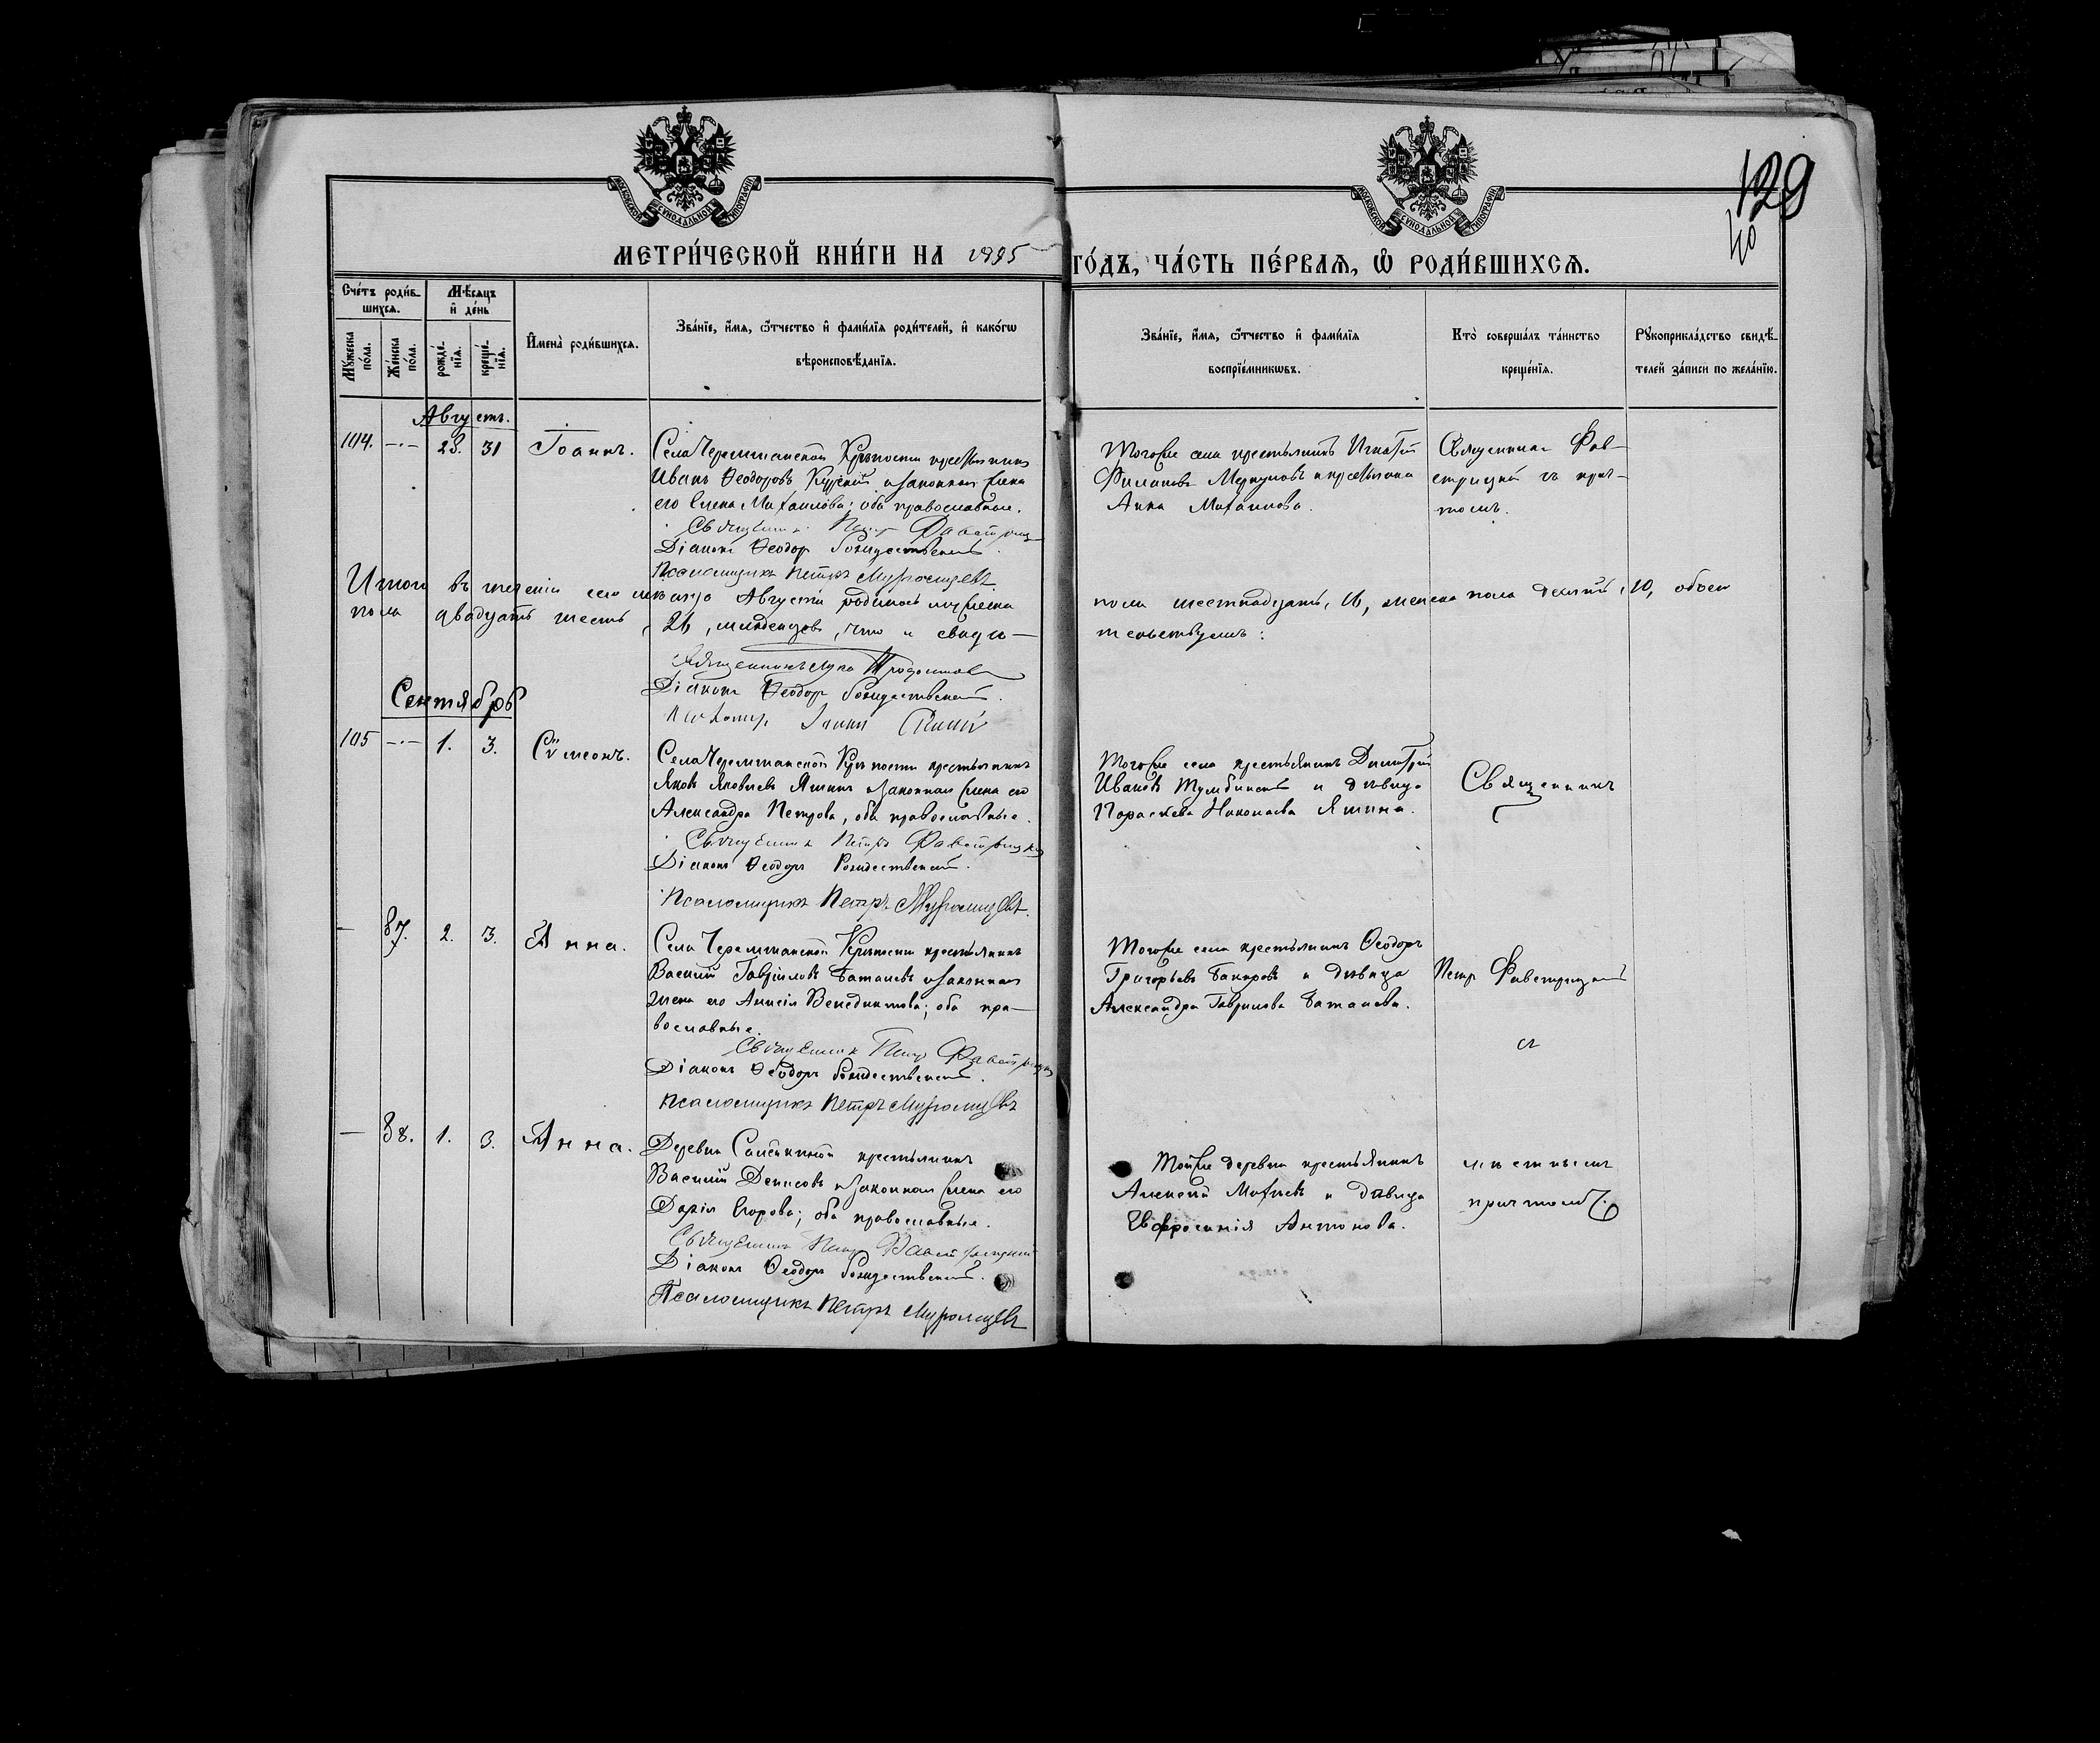 129
40
МОСКОВСКОЙ СѴНОДАЛЬНОЙ ТИПОГРАФІИ
МОСКОВСКОЙ СѴНОДАЛЬНОЙ ТИПОГРАФІИ
МЕТРИ́ЧЕСКОЙ КНИ́ГИ НА 1895 ГО́ДЪ, ЧА́СТЬ ПЕ́РВАЯ, Ѡ҆ РОДИ́ВШИХСЯ.
Сче́тъ роди́в-
шихся.
Мѣ́сяцъ
и҆ де́нь
Му́жеска по́ла.
Же́нска по́ла.
рожде́-
нїя.
креще́-
нїя.
И҆мена̀ роди́вшихся.
Зва́нїе, и҆́мя, ѻ҆́тчество и҆ фами́лїя роди́телей, и҆ како́гѡ
вѣроисповѣ́данїя.
Зва́нїе, и҆́мя, ѻ҆́тчество и҆ фами́лїя
воспрїе́мникѡвъ.
Кто̀ соверша́лъ та́инство
креще́нїя.
Рꙋкоприкла́дство свидѣ́-
телей за́писи по жела́нїю.
Августъ.
104. — 28. 31 Іоаннъ.
Села Черемшанской Крѣпости крестьянинъ
Иванъ Ѳеодоровъ и законная жена
его Елена Михаилова; оба православные.
Священникъ Петръ Фавстрицкій
Діаконъ Ѳеодоръ Рождественскій.
Псаломщикъ Петръ Муромцевъ
Тогоже села крестьянинъ Игнатій
Филиповъ Меркуловъ и крестьянка
Анна Михаилова.
Священникъ Фав-
стрицкій съ прич-
томъ.
Итого въ теченіи сего мѣсяца Августа родилось мужеска
пола шестнадцать, 16, женска пола десять, 10, обоего
пола двадцать шесть, 26, младенцевъ, что и свидѣ-
тельствуемъ:
Священникъ Лука
Діаконъ Ѳеодоръ Рождественскій.
Псаломщ. Іоаннъ
Сентябрь
105 — 1. 3. Сѵмеонъ.
Села Черемшанской Крѣпости крестьянинъ
Яковъ Яковлевъ Яшинъ и законная жена его
Александра Петрова, оба православные.
Священникъ Петръ Фавстрицкій
Діаконъ Ѳеодоръ Рождественскій.
Псаломщикъ Петръ Муромцевъ.
Тогоже села крестьянинъ Димитрій
Ивановъ Тумбинскій и дѣвица
Параскева Николаева Яшина.
Священникъ
— 87. 2. 3. Анна.
Села Черемшанской Крѣпости крестьянинъ
Василій Гавріиловъ Баташевъ и законная
жена его Анисія Венедиктова; оба пра-
вославные.
Священникъ Петръ Фавстрицкій
Діаконъ Ѳеодоръ Рождественскій.
Псаломщикъ Петръ Муромцевъ
Тогоже села крестьянинъ Ѳеодоръ
Григорьевъ Бакировъ и дѣвица
Александра Гаврилова Баташева.
Петръ Фавстрицкій
съ
— 88. 1. 3. Анна.
Деревни крестьянинъ
Василій Денисовъ и законная жена его
Дарія Егорова; оба православные.
Священникъ Петръ Фавстрицкій
Діаконъ Ѳеодоръ Рождественскій.
Псаломщикъ Петръ Муромцевъ
Тойже деревни крестьянинъ
Алексѣй Матѳеевъ и дѣвица
Евфросинія Антонова.
мѣстнымъ
причтомъ.